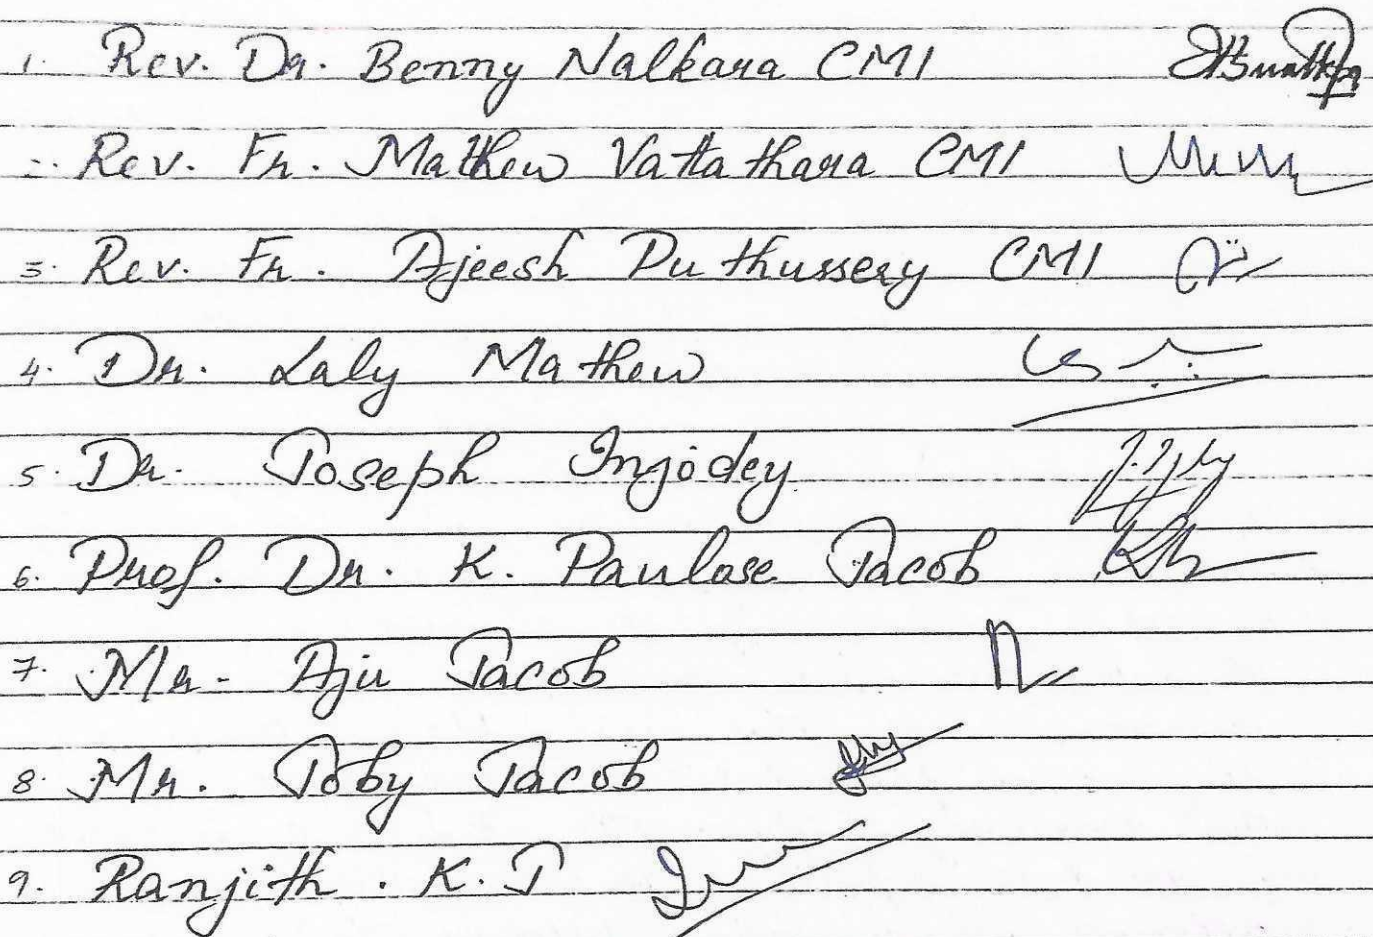 1. Rev. Dr. Benny Nalkara CMI
2. Rev. Fr. Mathew Vattathara CMI
3. Rev. Fr. Ajeesh Puthussery CMI
4. Dr. Laly Mathew
5. Dr. Joseph Injodey
6. Prof. Dr. K. Paulose Jacob
7. Mr. Aju Jacob
8. Mr. Joby Jacob
9. Ranjith . K. J